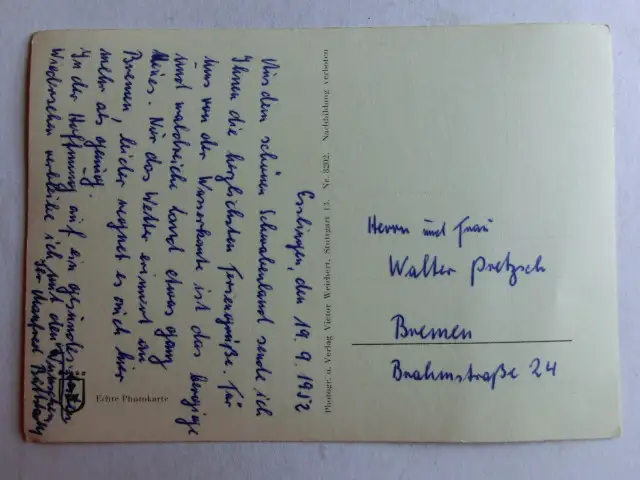 Esslingen, den 19.9.1952
Aus dem schönen Schwabenland sende ich
Ihnen die herzlichsten Feriengrüße. Für
uns von der Wasserkante ist das bergige
und waldreiche Land etwas ganz
Neues. Nur das Wetter erinnert an
Bremen, leider regnet es auch hier
mehr als genug.
In der Hoffnung auf ein gesundes
Wiedersehen verbleibe ich mit den
Ihr Manfred
Echte Photokarte
Photogr. u. Verlag Victor Weichert, Stuttgart 13. Nr. 8202. Nachbildung verboten
Herrn und Frau
Walter Pretzsch
Bremen
Brahmstraße 24